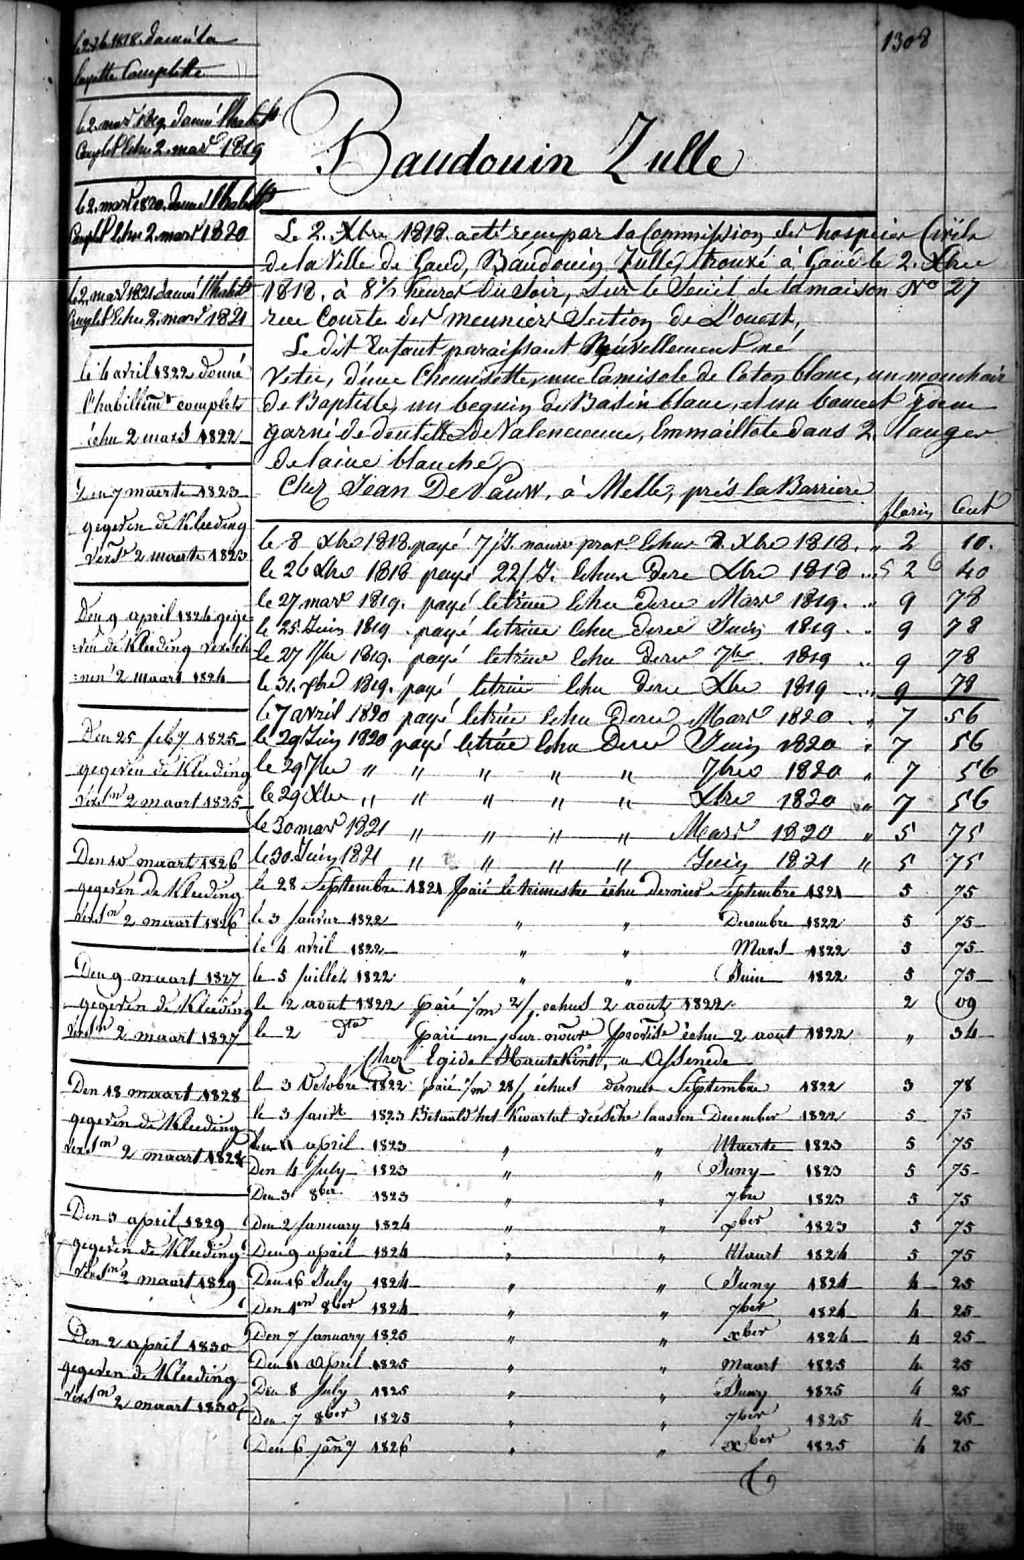 1308
Baudouin Zulle
Le 2. Xbre 1818. acté reçu par la Commission des hospices Civils
de la Ville de Gand, Baudouin Zulle, trouvé à Gand le 2. Xbre
1818, à 8½ heures du Soir, Sur le Seuil de la maison No 27
rue Courte des meuniers Section de L'ouest,
Le dit Enfant paraissant Nouvellement né
Vetu, d'une Chemisette, une Camisole de Coton blanc, un mouchoir
de Baptiste, un beguin de Basin blanc, et un bonnet idem
garni de dentelle de Valencienne, Emmailloté dans 2 langes
de laine blanche,
Chez Jean De Pauw, à Melle, près la Barriere
florin Cent
le 8 Xbre 1818. payé 7 j. nourr. prov. Echus 8. Xbre 1818. " 2 10.
le 26 Xbre 1818 payé 22/J. Echus Dere Xbre 1818 2 40
le 27 mars 1819. payé letrim Echu Dere Mars 1819. " 9 78
le 25 Juin 1819. payé letrim Echu Dere Juin 1819. " 9 78
le 27 7bre 1819. payé letrim Echu Dere 7bre 1819 " 9 78
le 31. Xbre 1819. payé letrim Echu Dere Xbre 1819 9 78
le 7 avril 1820 payé letrim Echu Dere Mars 1820 " 7 56
le 29 Juin 1820 payé letrim Echu Dere Juin 1820 " 7 56
le 29 7bre " " " " " 7bre 1820 " 7 56
le 29 Xbre " " " " " Xbre 1820 " 7 56
le 30 mars 1821 " " " " Mars 1820 " 5 75
le 30. Juin 1821 " " " " Juin 1821 " 5 75
le 28 Septembre 1821 payé le trimestre échu dernier Septembre 1821 5 75
le 3 Janvier 1822 " " Decembre 1822 5 75
le 4 avril 1822 " " Mars 1822 5 75
le 5 Juillet 1822 " " Juin 1822 5 75
le 2 aout 1822 paié 1/m 2/j echus 2 aout 1822 2 09
le 2 dto paié un jour nourr provisre échu 2 aout 1822 " 34
Chez Egide Hautekint, a Assenede
le 3 Octobre 1822 paié 1/m 28/j échus dernier Septembre 1822 3 78
le 3 Janvr 1823 Betaald het Kwartal verschn laasten December 1822 5 75
Den 11 april 1823 " " Maerte 1823 5 75
Den 4 July 1823 " " Juny 1823 5 75
Den 3 8ber 1823 " " 7bre 1823 5 75
Den 2 January 1824 " " xber 1823 5 75
Den 9 april 1824 " " Maart 1824 5 75
Den 16 July 1824 " " Juny 1824 4 25
Den 1en 8ber 1824 " " 7ber 1824 4 25
Den 7 January 1825 " " xber 1824 4 25
Den 11 April 1825 " " Maart 1825 4 25
Den 8 July 1825 " " Juny 1825 4 25
Den 7 8ber 1825 " " 7ber 1825 4 25
Den 6 jany 1826 " " xber 1825 4 25
le 2 Xb 1818. donné la
layette Complette
le 2. mars 1819. donné l'habilt
Complet Echu 2. mars 1819
le 2. mars 1820. donné l'habilt
Complet Echu 2. mars 1820
le 2. mars 1821 donné l'habilt
Complet Echu 2. mars 1821
le 4 avril 1822 donné
l'habillemt complets
échu 2 mars 1822
Den 7 maerte 1823
gegeven de Kleeding
versn 2 maarte 1823
Den 9 april 1824 gege
=ven de Kleeding versche
=nen 2 maart 1824
Den 25 feby 1825
gegeven de Kleeding
versn 2 maart 1825
Den 10 maart 1826
gegeven de Kleeding
versn 2 maart 1826
Den 9 maart 1827
gegeven de Kleeding
versn 2 maart 1827
Den 18 maart 1828
gegeven de Kleeding
versn 2 maart 1828
Den 3 april 1829
gegeven de Kleeding
versn 2 maart 1829
Den 2 april 1830
gegeven de Kleeding
versn 2 maart 1830